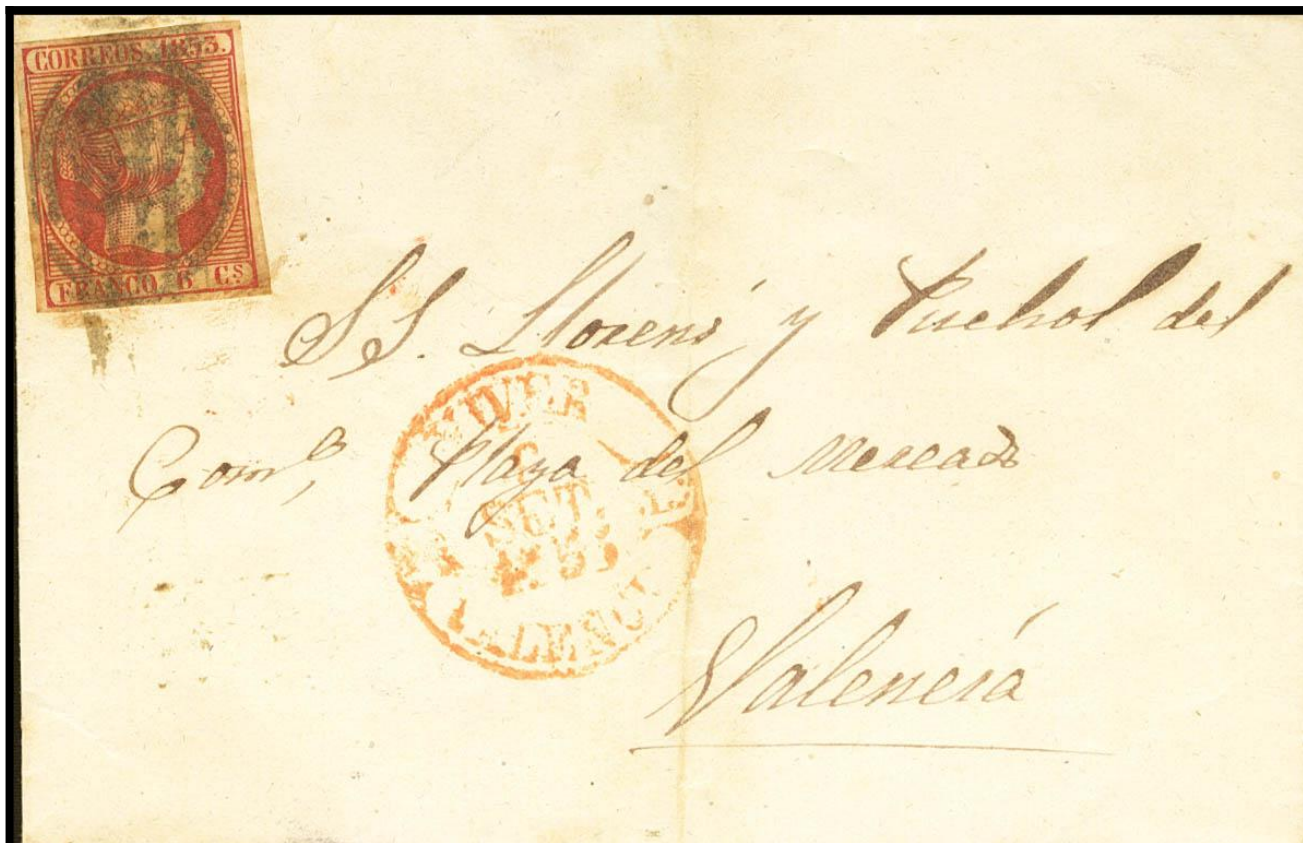 CORREOS. 1853.
FRANCO. 6 Cs
SS. Llorens y Puchol del
Como, Plaza del Mercado
Valencia
VIVER
SET.
VALENCIA